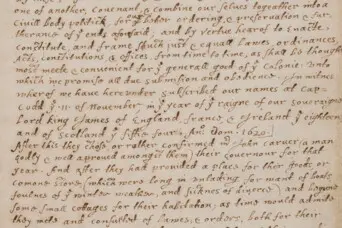 one of another, covenant, & combine our selves togeather into a
Civill body politick, for our better ordering, & preservation & fur-
therance of yᵉ ends aforesaid; and by vertue hearof to Enacte,
constitute, and frame shuch just & equall Lawes, ordinances,
Acts, constitutions, & offices, from time to time, as shall be thought
most meete & convenient for yᵉ generall good of yᵉ Colonie: Unto
which we promise all due submission and obedience. In witnes
wherof we have hereunder subscribed our names at Cap-
Codd yᵉ ·11· of November, in yᵉ year of yᵉ raigne of our soveraigne
Lord king James of England, france, & Ireland yᵉ eighteen
and of Scotland yᵉ fiftie fourth. Anº Dom. 1620.
After this they chose, or rather confirmed mʳ John carver (a man
godly & well aproved amongst them) their governour for that
year. And after they had provided a place for their goods or
comone store, (which were long in unlading, for want of boats,
foulnes of yᵉ winter weather, and sicknes of diverce) and begune
some small cottages for their habitation; as time would admitte
they mette and consulted of Lawes, & orders, both for their